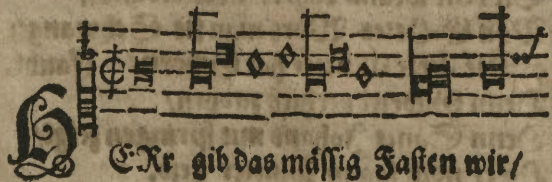 HERr gib das mässig Fasten wir/